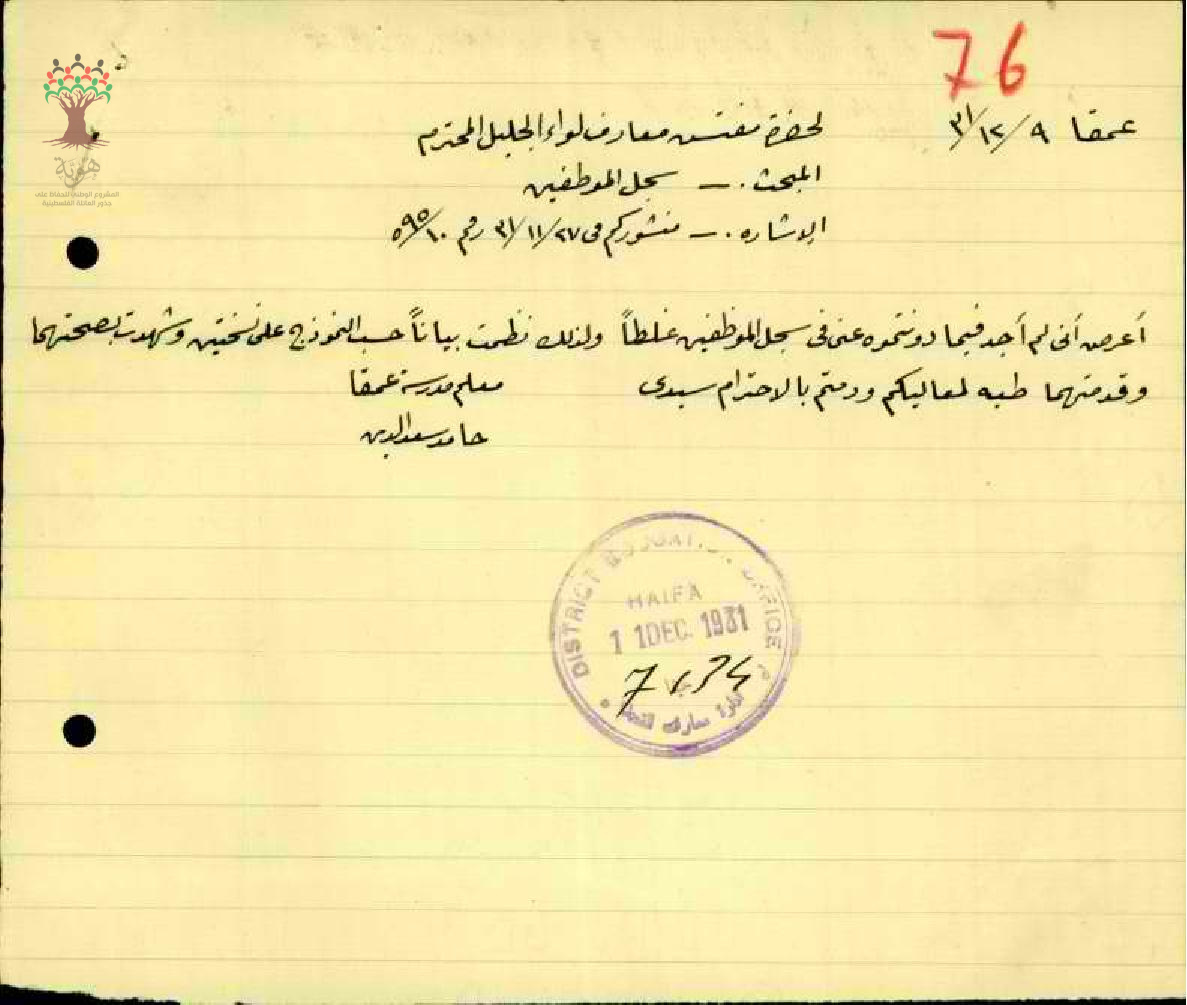 76
عمقا ٩/١٢/٣١
لحضرة مفتش معارف لواء الجليل المحترم
المبحث . — سجل الموظفين
الاشاره . — منشوركم في ٢٧/١١/٣١ رقم
أعرض أني لم أجد فيما دونتموه عني في سجل الموظفين غلطاً ولذلك نظمت بياناً حسب النموذج على نسختين وشهدت بصحتهما
وقدمتهما طيه لمعاليكم ودمتم بالاحترام سيدي
معلم مدرسة عمقا
حامد سعد الدين
DISTRICT EDUCATION OFFICE
HAIFA
11 DEC. 1931
ادارة معارف
هوية
المشروع الوطني للحفاظ على
جذور العائلة الفلسطينية